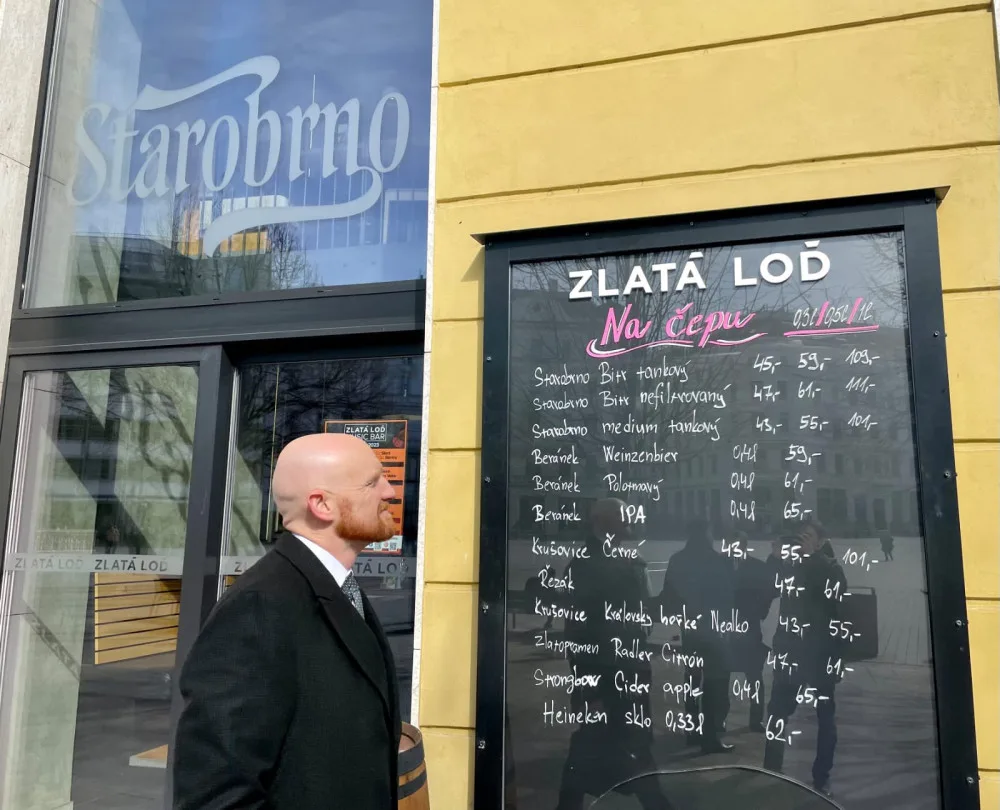 Starobrno
ZLATÁ LOĎ
Na čepu 0,3l/0,5l/1l
Starobrno Bitr tankový 45,- 59,- 109,-
Starobrno Bitr nefiltrovaný 47,- 61,- 111,-
Starobrno medium tankový 43,- 55,- 101,-
Beránek Weinzenbier 0,4l 59,-
Beránek Polotmavý 0,4l 61,-
Beránek IPA 0,4l 65,-
Krušovice Černé 43,- 55,- 101,-
Řezák 47,- 61,-
Krušovice Královsky hořké Nealko 43,- 55,-
Zlatopramen Radler Citrón 47,- 61,-
Strongbow Cider apple 0,4l 65,-
Heineken sklo 0,33l 62,-
ZLATÁ LOĎ
MUSIC BAR
ZLATÁ LOĎ ZLATÁ LOĎ